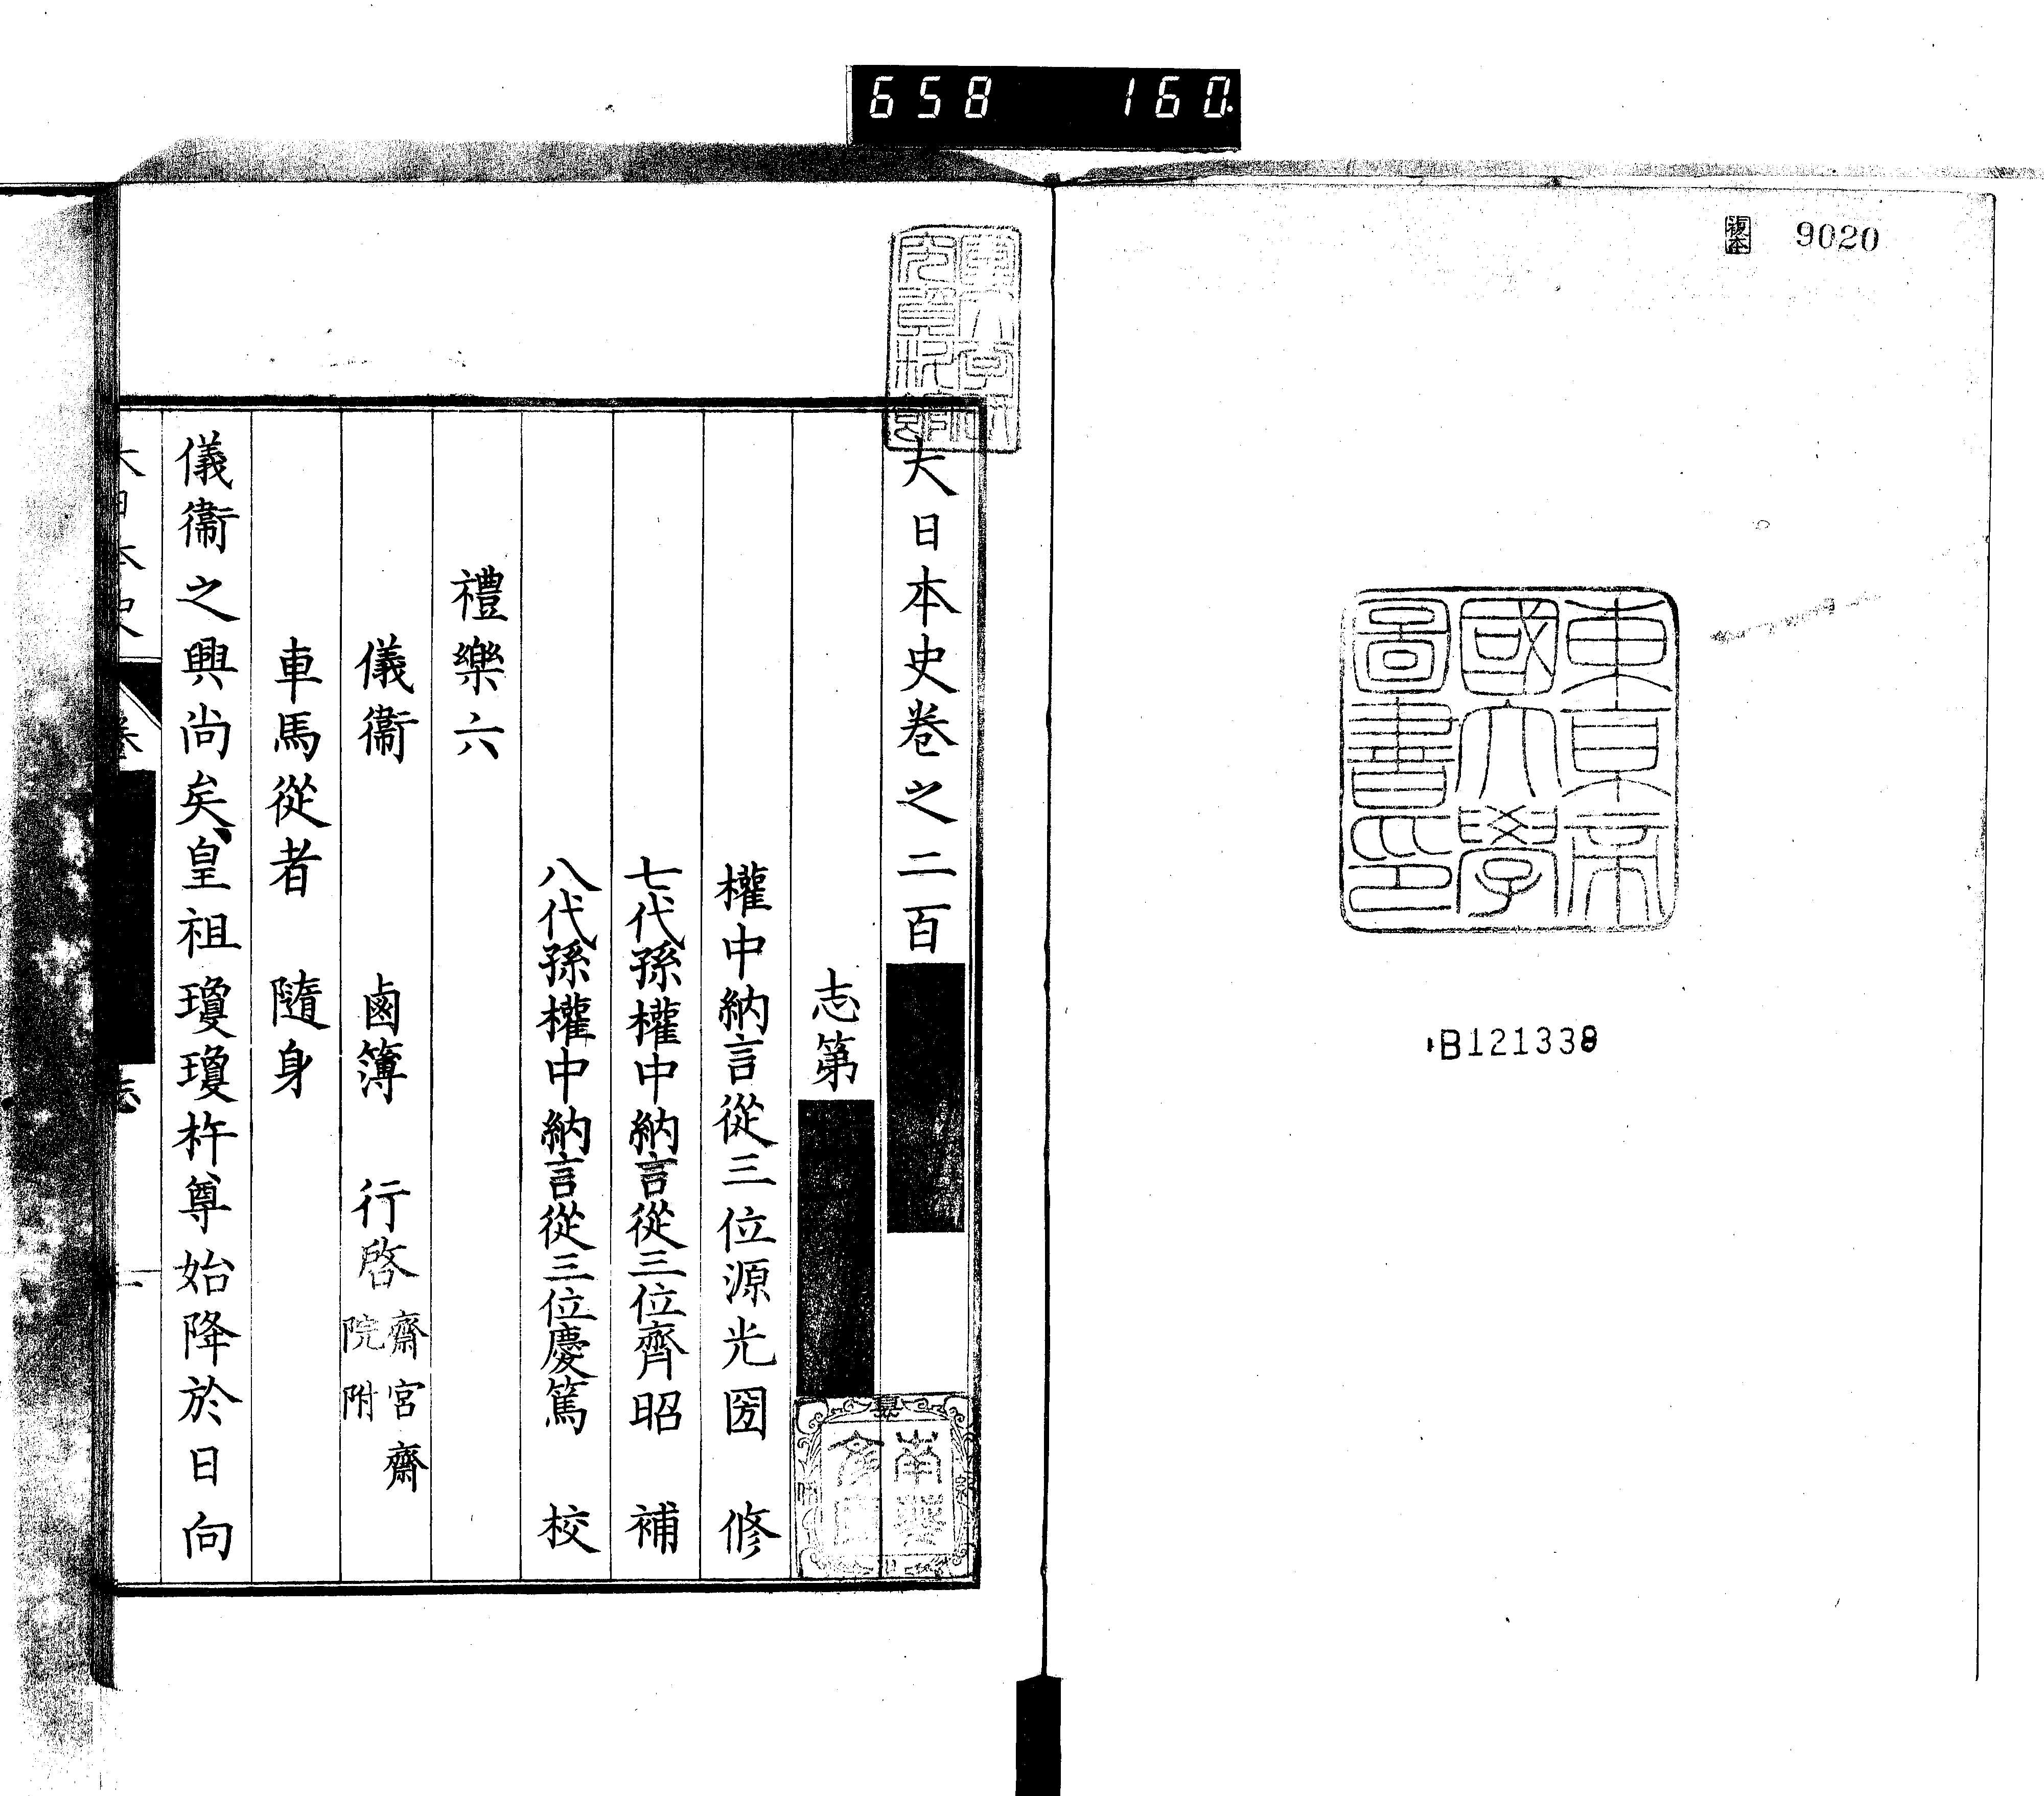 658 160.
複本
9020
東京帝
國大學
圖書印
B121338
大日本史卷之二百
志第
權中納言從三位源光圀 修
七代孫權中納言從三位齊昭 補
八代孫權中納言從三位慶篤 校
禮樂六
儀衞 鹵簿 行啓 齋宮齋
院附
車馬從者 隨身
儀衞之興尚矣皇祖瓊瓊杵尊始降於日向
大日本史 卷 志 一